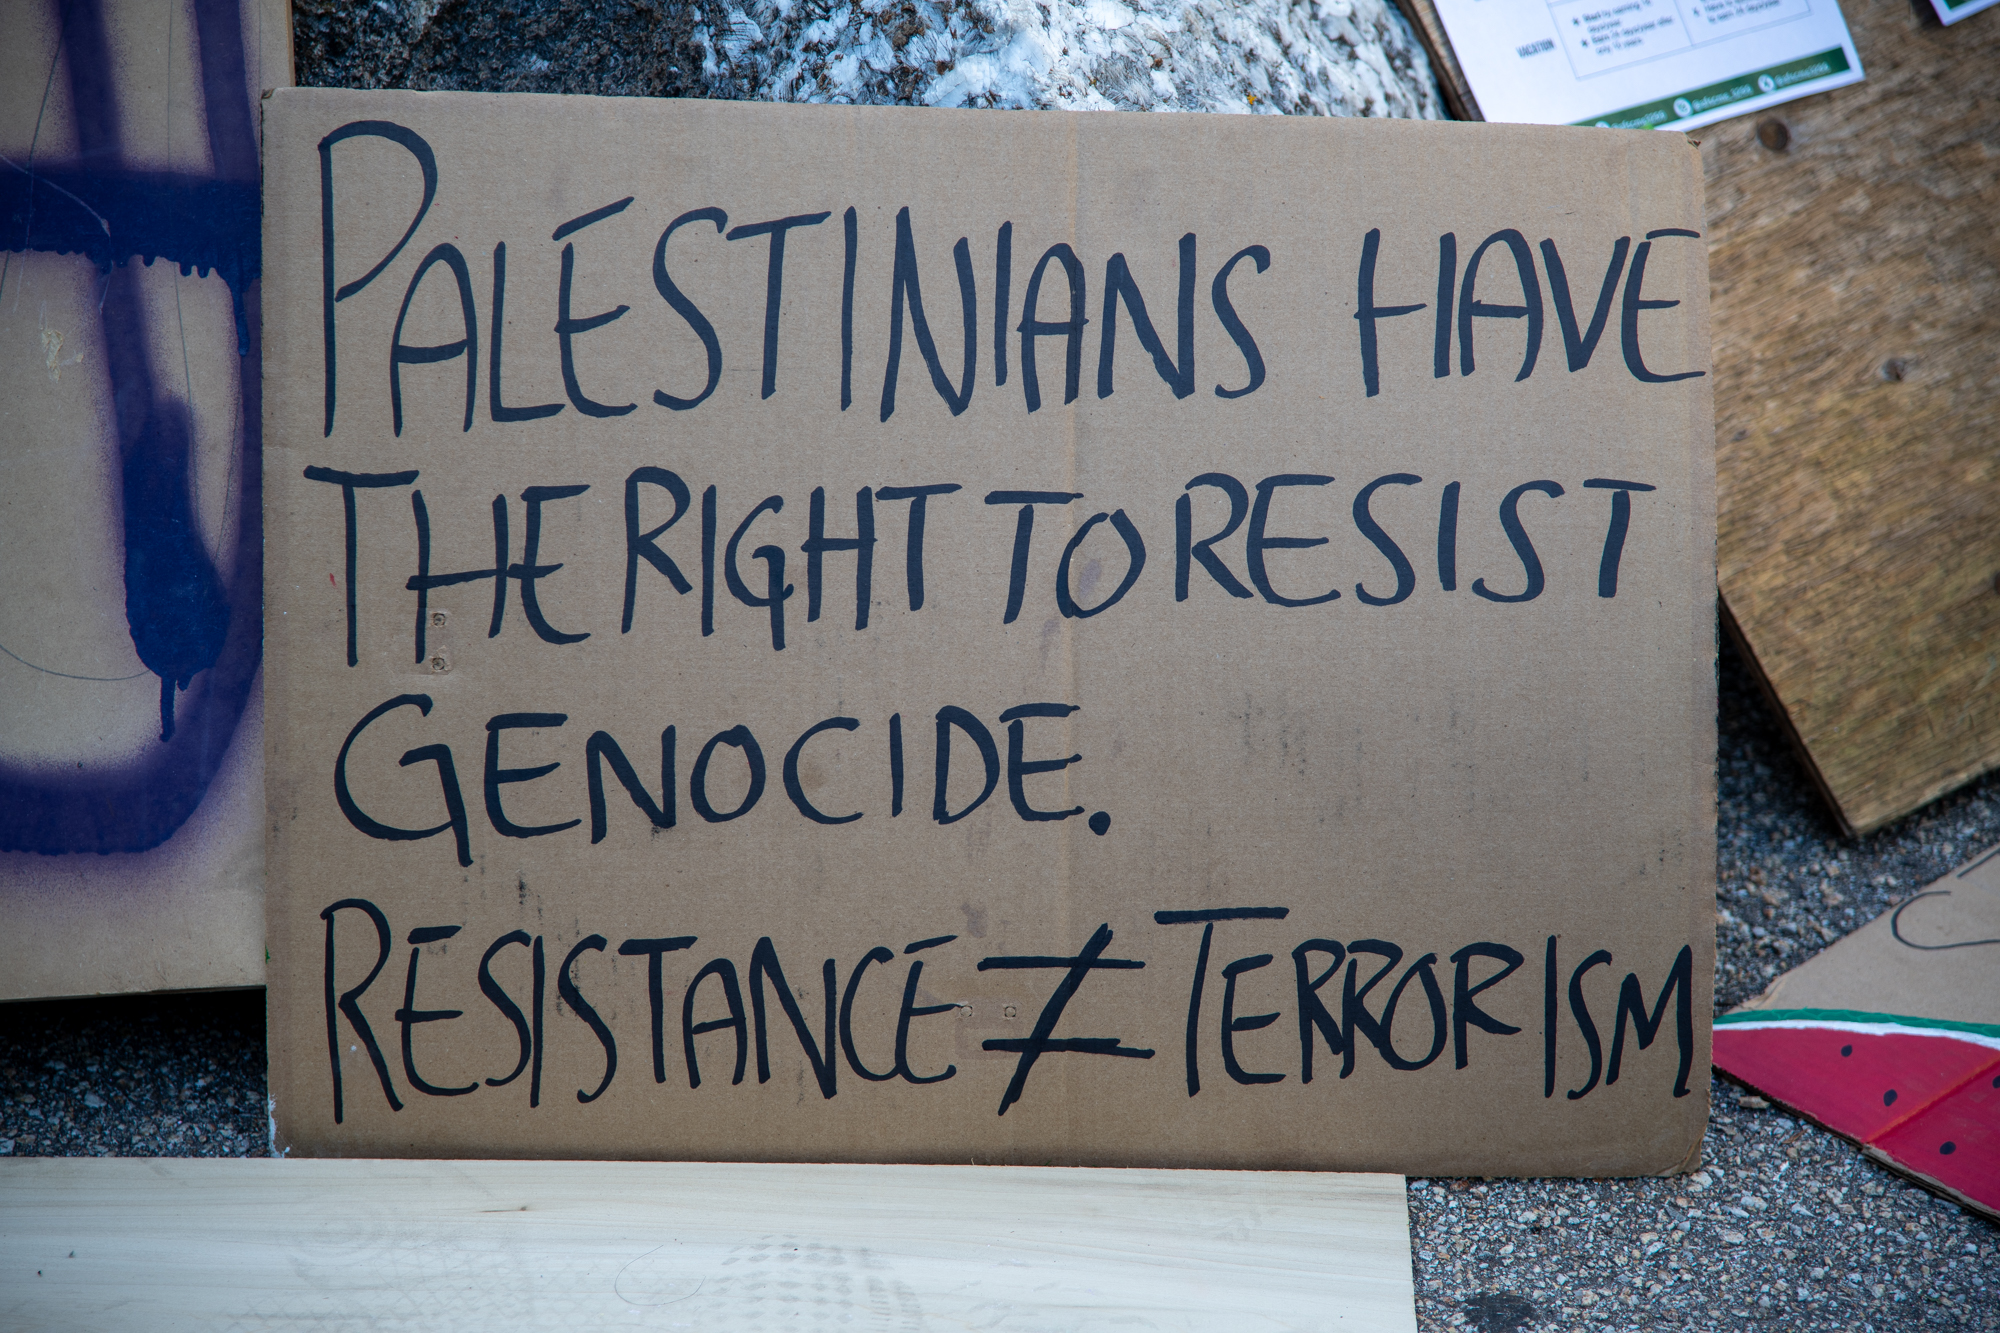 PALESTINIANS HAVE
THE RIGHT TO RESIST
GENOCIDE.
RESISTANCE ≠ TERRORISM
VACATION